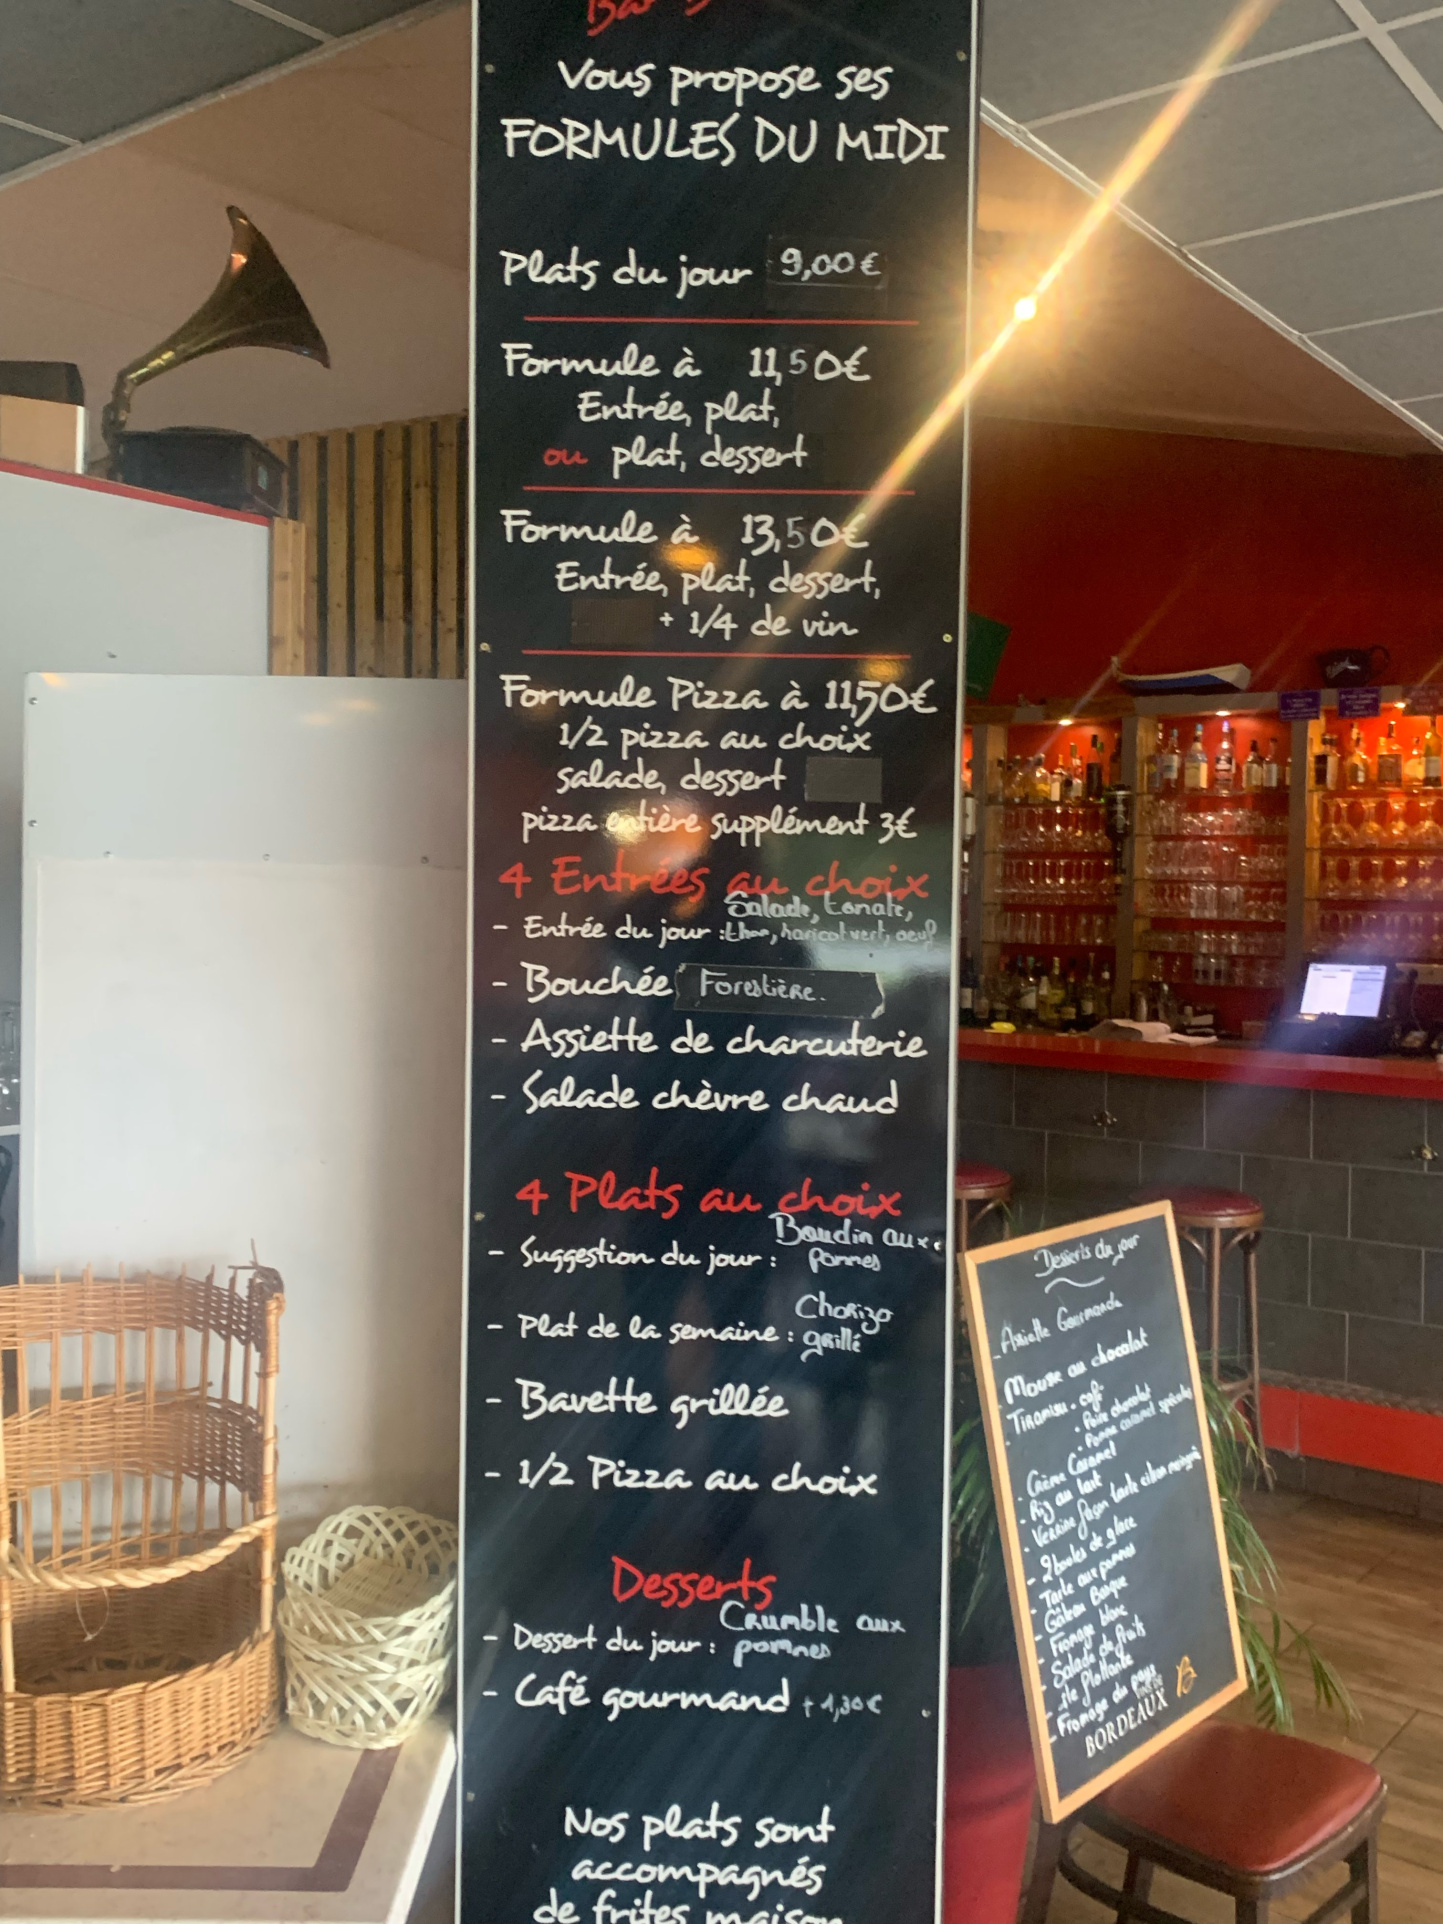 Vous propose ses
FORMULES DU MIDI
Plats du jour 9,00€
Formule à 11,50€
Entrée, plat,
ou plat, dessert
Formule à 13,50€
Entrée, plat, dessert,
+ 1/4 de vin
Formule Pizza à 11,50€
1/2 pizza au choix
salade, dessert
pizza entière supplément 3€
4 Entrées au choix
Salade, tomate,
- Entrée du jour : thon, haricot vert, oeuf
- Bouchée Forestière.
- Assiette de charcuterie
- Salade chèvre chaud
4 Plats au choix
Boudin aux
- Suggestion du jour : pommes
Chorizo
- Plat de la semaine : grillé
- Bavette grillée
- 1/2 Pizza au choix
Desserts
Crumble aux
- Dessert du jour : pommes
- Café gourmand + 1,30€
Nos plats sont
accompagnés
de frites maison
Desserts du jour
- Assiette Gourmande
- Mousse au chocolat
- Tiramisu . café
. Poire chocolat
. Pomme caramel spéculos
- Crème Caramel
- Riz au lait
- Verrine façon tarte citron meringué
- 2 boules de glace
- Tarte aux pommes
- Gâteau Basque
- Fromage blanc
- Salade de fruits
- île flottante
- Fromage du pays
BORDEAUX B